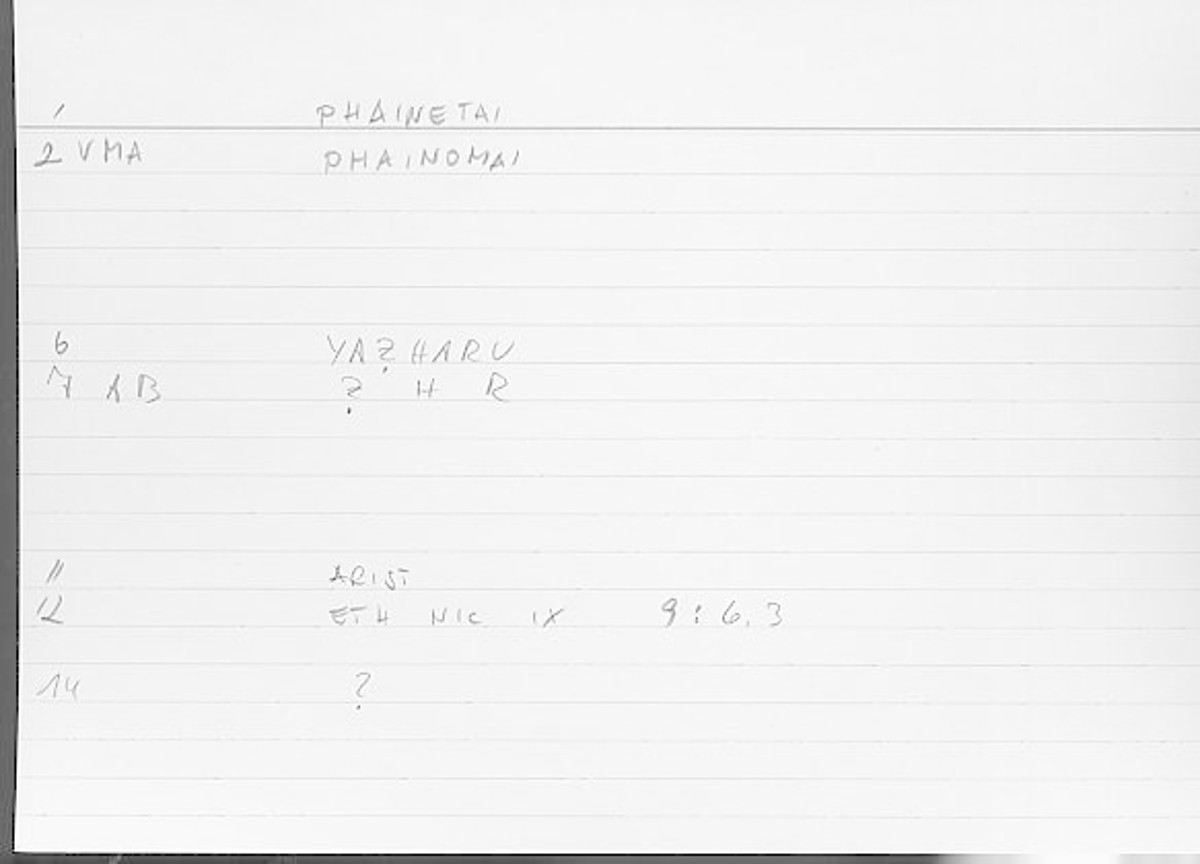 1 PHAINETAI
2 VMA PHAINOMAI
6 YAẒHARU
7 AB Ẓ H R
11 ARIST
12 ETH NIC IX 9:6.3
14 ?